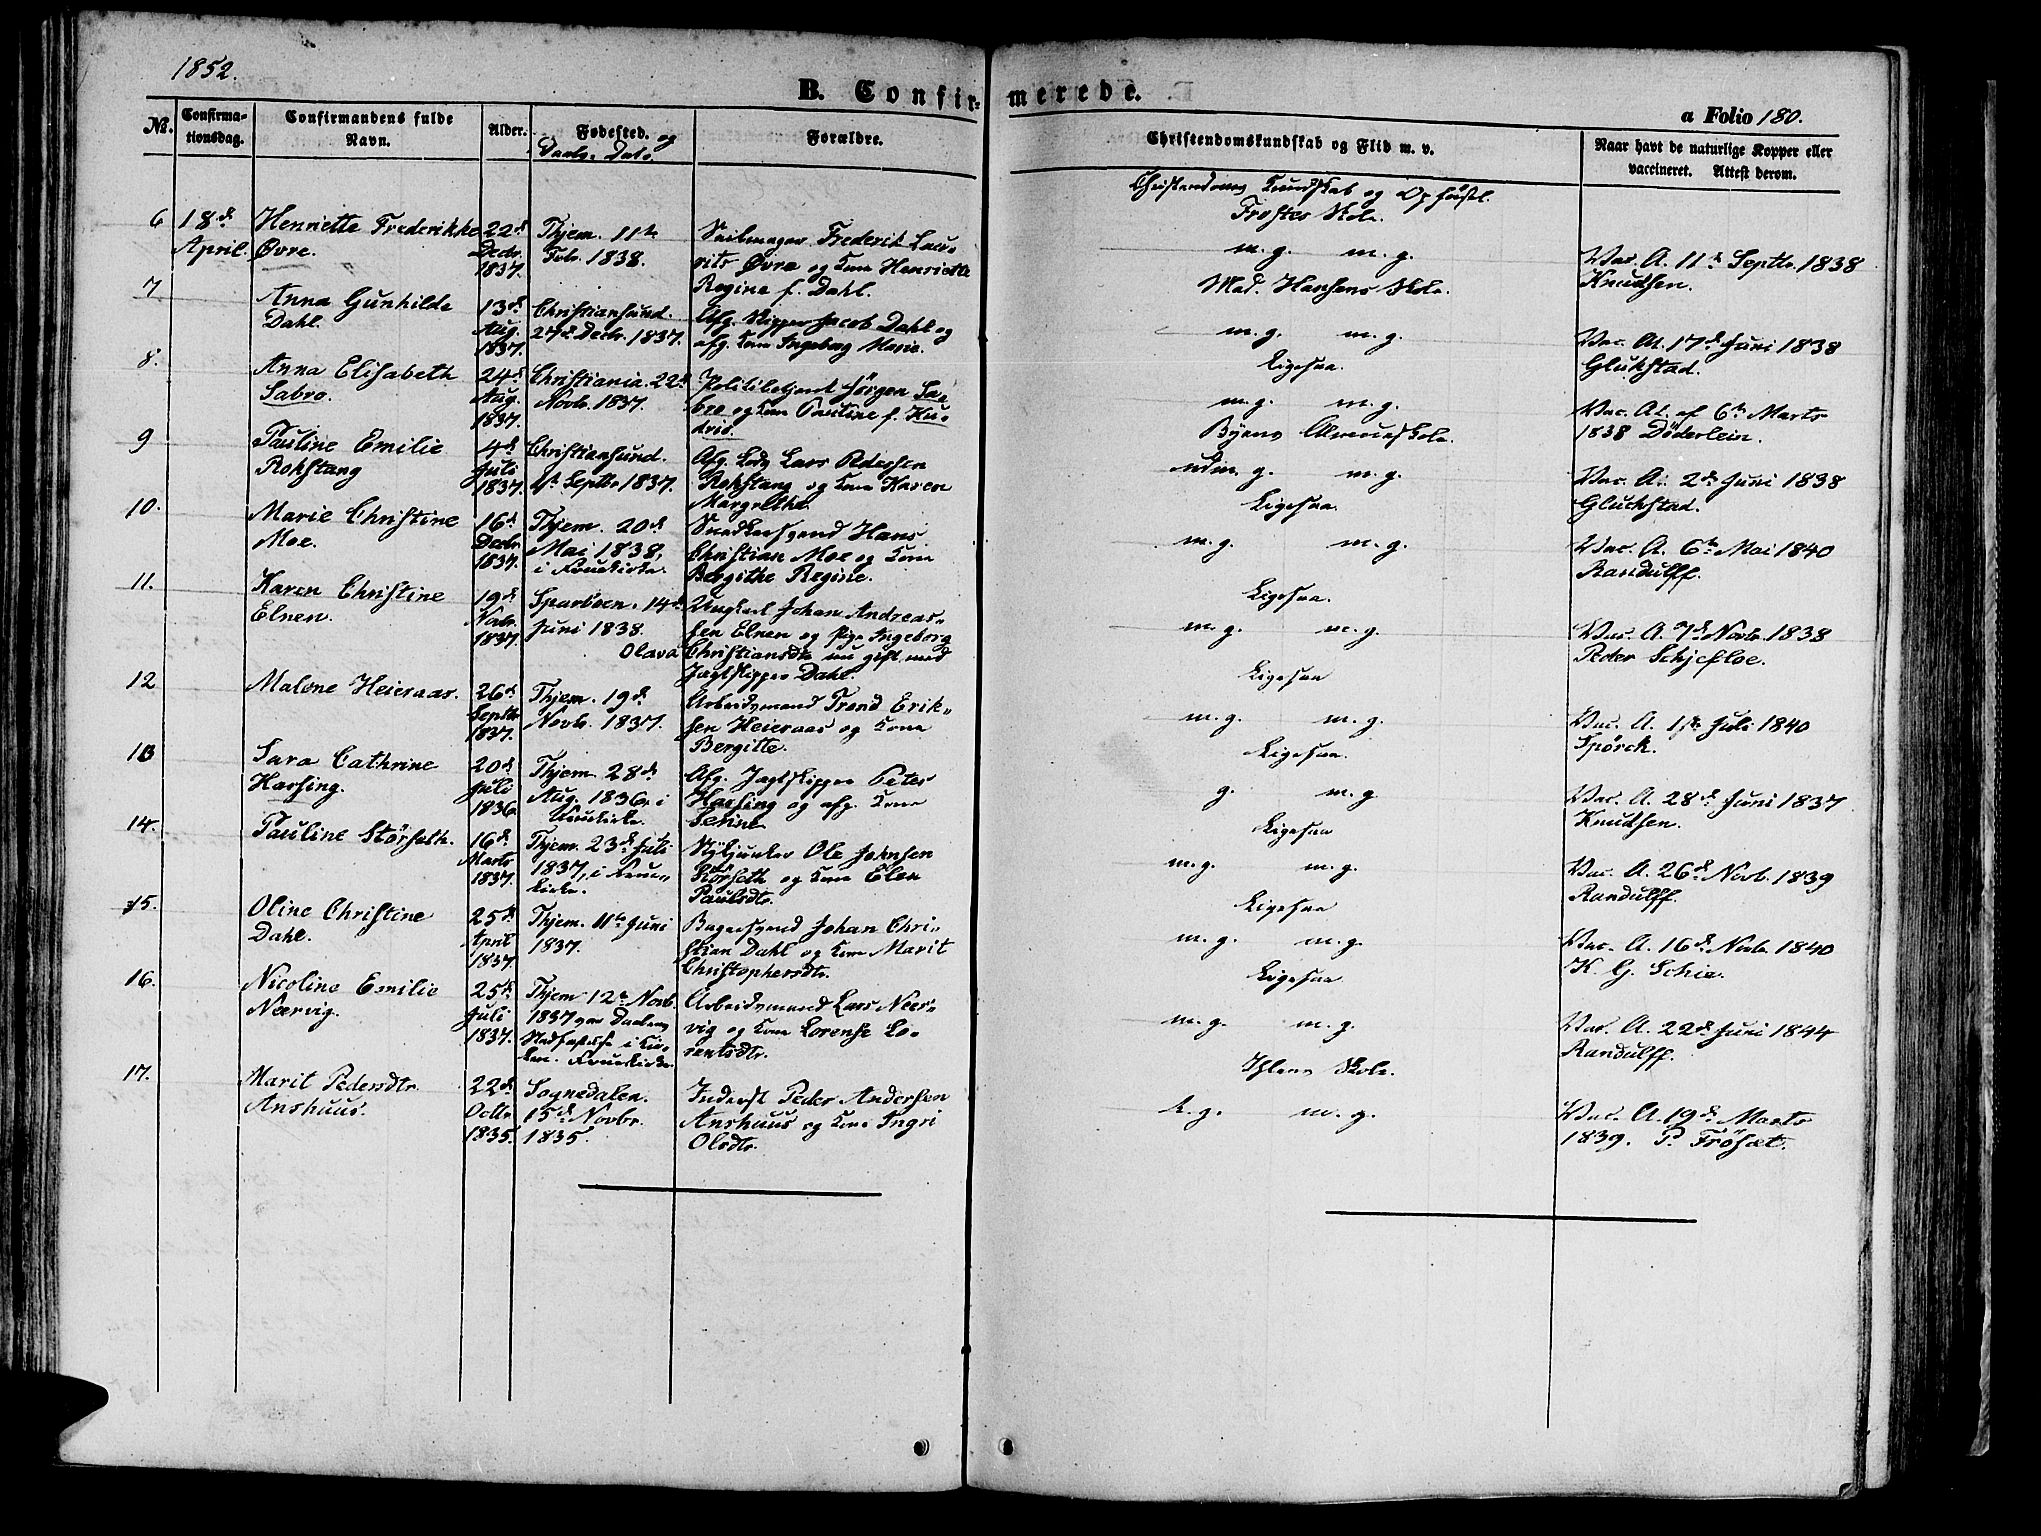 1852.
B. Confir-
merede.
a Folio 180.
No.
Confirma-
tionsdag.
Confirmandens fulde
Navn.
Alder.
Fødested. og
Daabs Dato
Forældre.
Christendomskundskab og Flid m. v.
Naar havt de naturlige Kopper eller
vaccineret. Attest derom.
Christendoms Kundskab og Opførsel.
Frostes Skole.
6
18de
April.
Henriette Frederikke
Øvre.
22de
Decbr.
1837.
Thjem. 11te
Febr. 1838.
Seilmager Frederik Lau-
rits Øvre og Kone Henriette
Regine f. Dahl.
m. g. m. g.
Vac. A. 11te Septbr. 1838
Knudsen.
7
Anna Gunhilde
Dahl.
13de
Aug.
1837.
Christiansund.
27de Decbr. 1837.
Afg. Skipper Jacob Dahl og
afg. Kone Ingeborg Marie.
Mad. Hansens Skole.
m. g. m. g.
Vac. At. 17de Juni 1838
Glukstad.
8.
Anna Elisabeth
Sabro.
24de
Aug.
1837.
Christiania. 22de
Novbr. 1837.
Politibetjent Jørgen Sa-
bro og Kone Pauline f.
Ligesaa.
m. g. m. g.
Vac. At. af 6te Marts
1838 Døderlein.
9
Pauline Emilie
Rokstang
4de
Juli
1837.
Christiansund.
Septbr. 1837.
Afg. Lods Lars Pedersen
Rokstang og Kone Karen
Margrethe.
Byens Almueskole.
udm. g. m. g.
Vac. A. 2den Juni 1838
Gluckstad.
10.
Marie Christine
Moe.
16de
Decbr.
1837.
Thjem. 20de
Mai 1838,
i Fruekirke.
Snedkersvend Hans
Christian Moe og Kone
Bergithe Regine.
Ligesaa.
m. g. m. g.
Vac. A. 6te Mai 1840
Randulff.
11.
Karen Christine
Elnen.
19de
Novbr.
1837.
Sparboen. 14de
Juni 1838.
Olava
Ungkarl Johan Andreas-
sen Elnen og Pige Ingeborg
Christiansdtr. nu gift med
Jagtskipper Dahl.
Ligesaa.
m. g. m. g.
Vac. A. 7de Novbr. 1838
Peder Schjefloe.
12
Malene Heieraas.
26de
Septbr.
1837.
Thjem. 19de
Novbr. 1837.
Arbeidsmand Trond Erik-
sen Heieraas og Kone
Bergitte.
Ligesaa
m. g. m. g.
Vac. A. 1ste Juli 1840
Spørck.
13
Sara Cathrine
Harsing.
20de
Juli
1836.
Thjem. 28de
Aug. 1836, i
Fruekirke.
Afg. Jagtskipper Peter
Harsing og afg. Kone
Serine
Ligesaa.
g. m. g
Vac. A. 28de Juni 1837
Knudsen.
14.
Pauline Størseth.
16de
Marts
1837.
Thjem. 23de Juli
1837, i Frue-
kirke.
Stykjunker Ole Johnsen
Størseth og Kone Elen
Paulsdtr.
Ligesaa
m. g. m. g.
Vac. A. 26de Novb. 1839
Randulff.
15.
Oline Christine
Dahl.
25de
April
1837.
Thjem. 11te Juni
1837.
Bagersvend Johan Chri-
stian Dahl og Kone Marit
Christophersdtr.
Ligesaa
m. g. m. g.
Vac. A. 16de Novbr. 1840
K. G. Schie.
16.
Nicoline Emilie
Neervig.
25de
Juli
1837.
Thjem 12te Novb.
1837 var Daabens
Stadfæstelse i Kir-
ken. Fruekirke.
Arbeidsmand Lars Neer-
vig og Kone Lorense Lo-
rentsdtr.
Ligesaa
m. g. m. g.
Vac. A. 22de Juni 1844
Randulff.
17.
Marit Pedersdtr.
Anshuus.
22de
Octbr.
1835.
Sognedalen.
15de Novbr.
1835.
Inderst Peder Andersen
Anshuus og Kone Ingri
Olsdtr.
Ihlens Skole.
t. g. m. g.
Vac. A. 19de Marts
1839. P. Frøset.